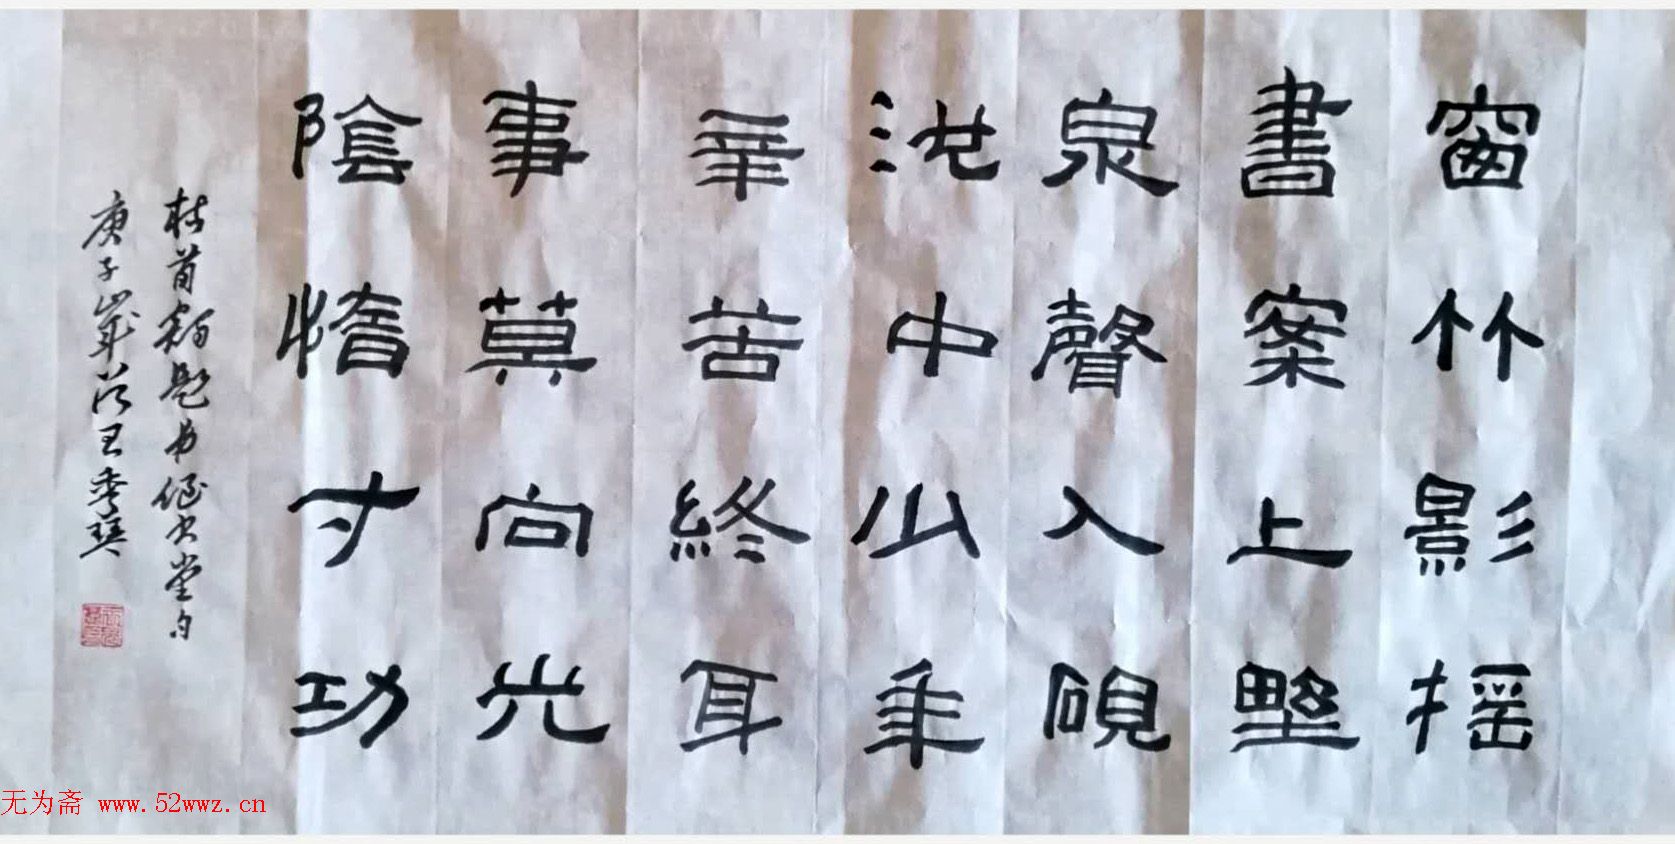 窗竹影摇
書案上野
泉聲入硯
池中少年
辛苦終身
事莫向光
陰惰寸功
杜荀鶴题弟侄书堂句
庚子歲王秀琴
无为斋 www.52wwz.cn